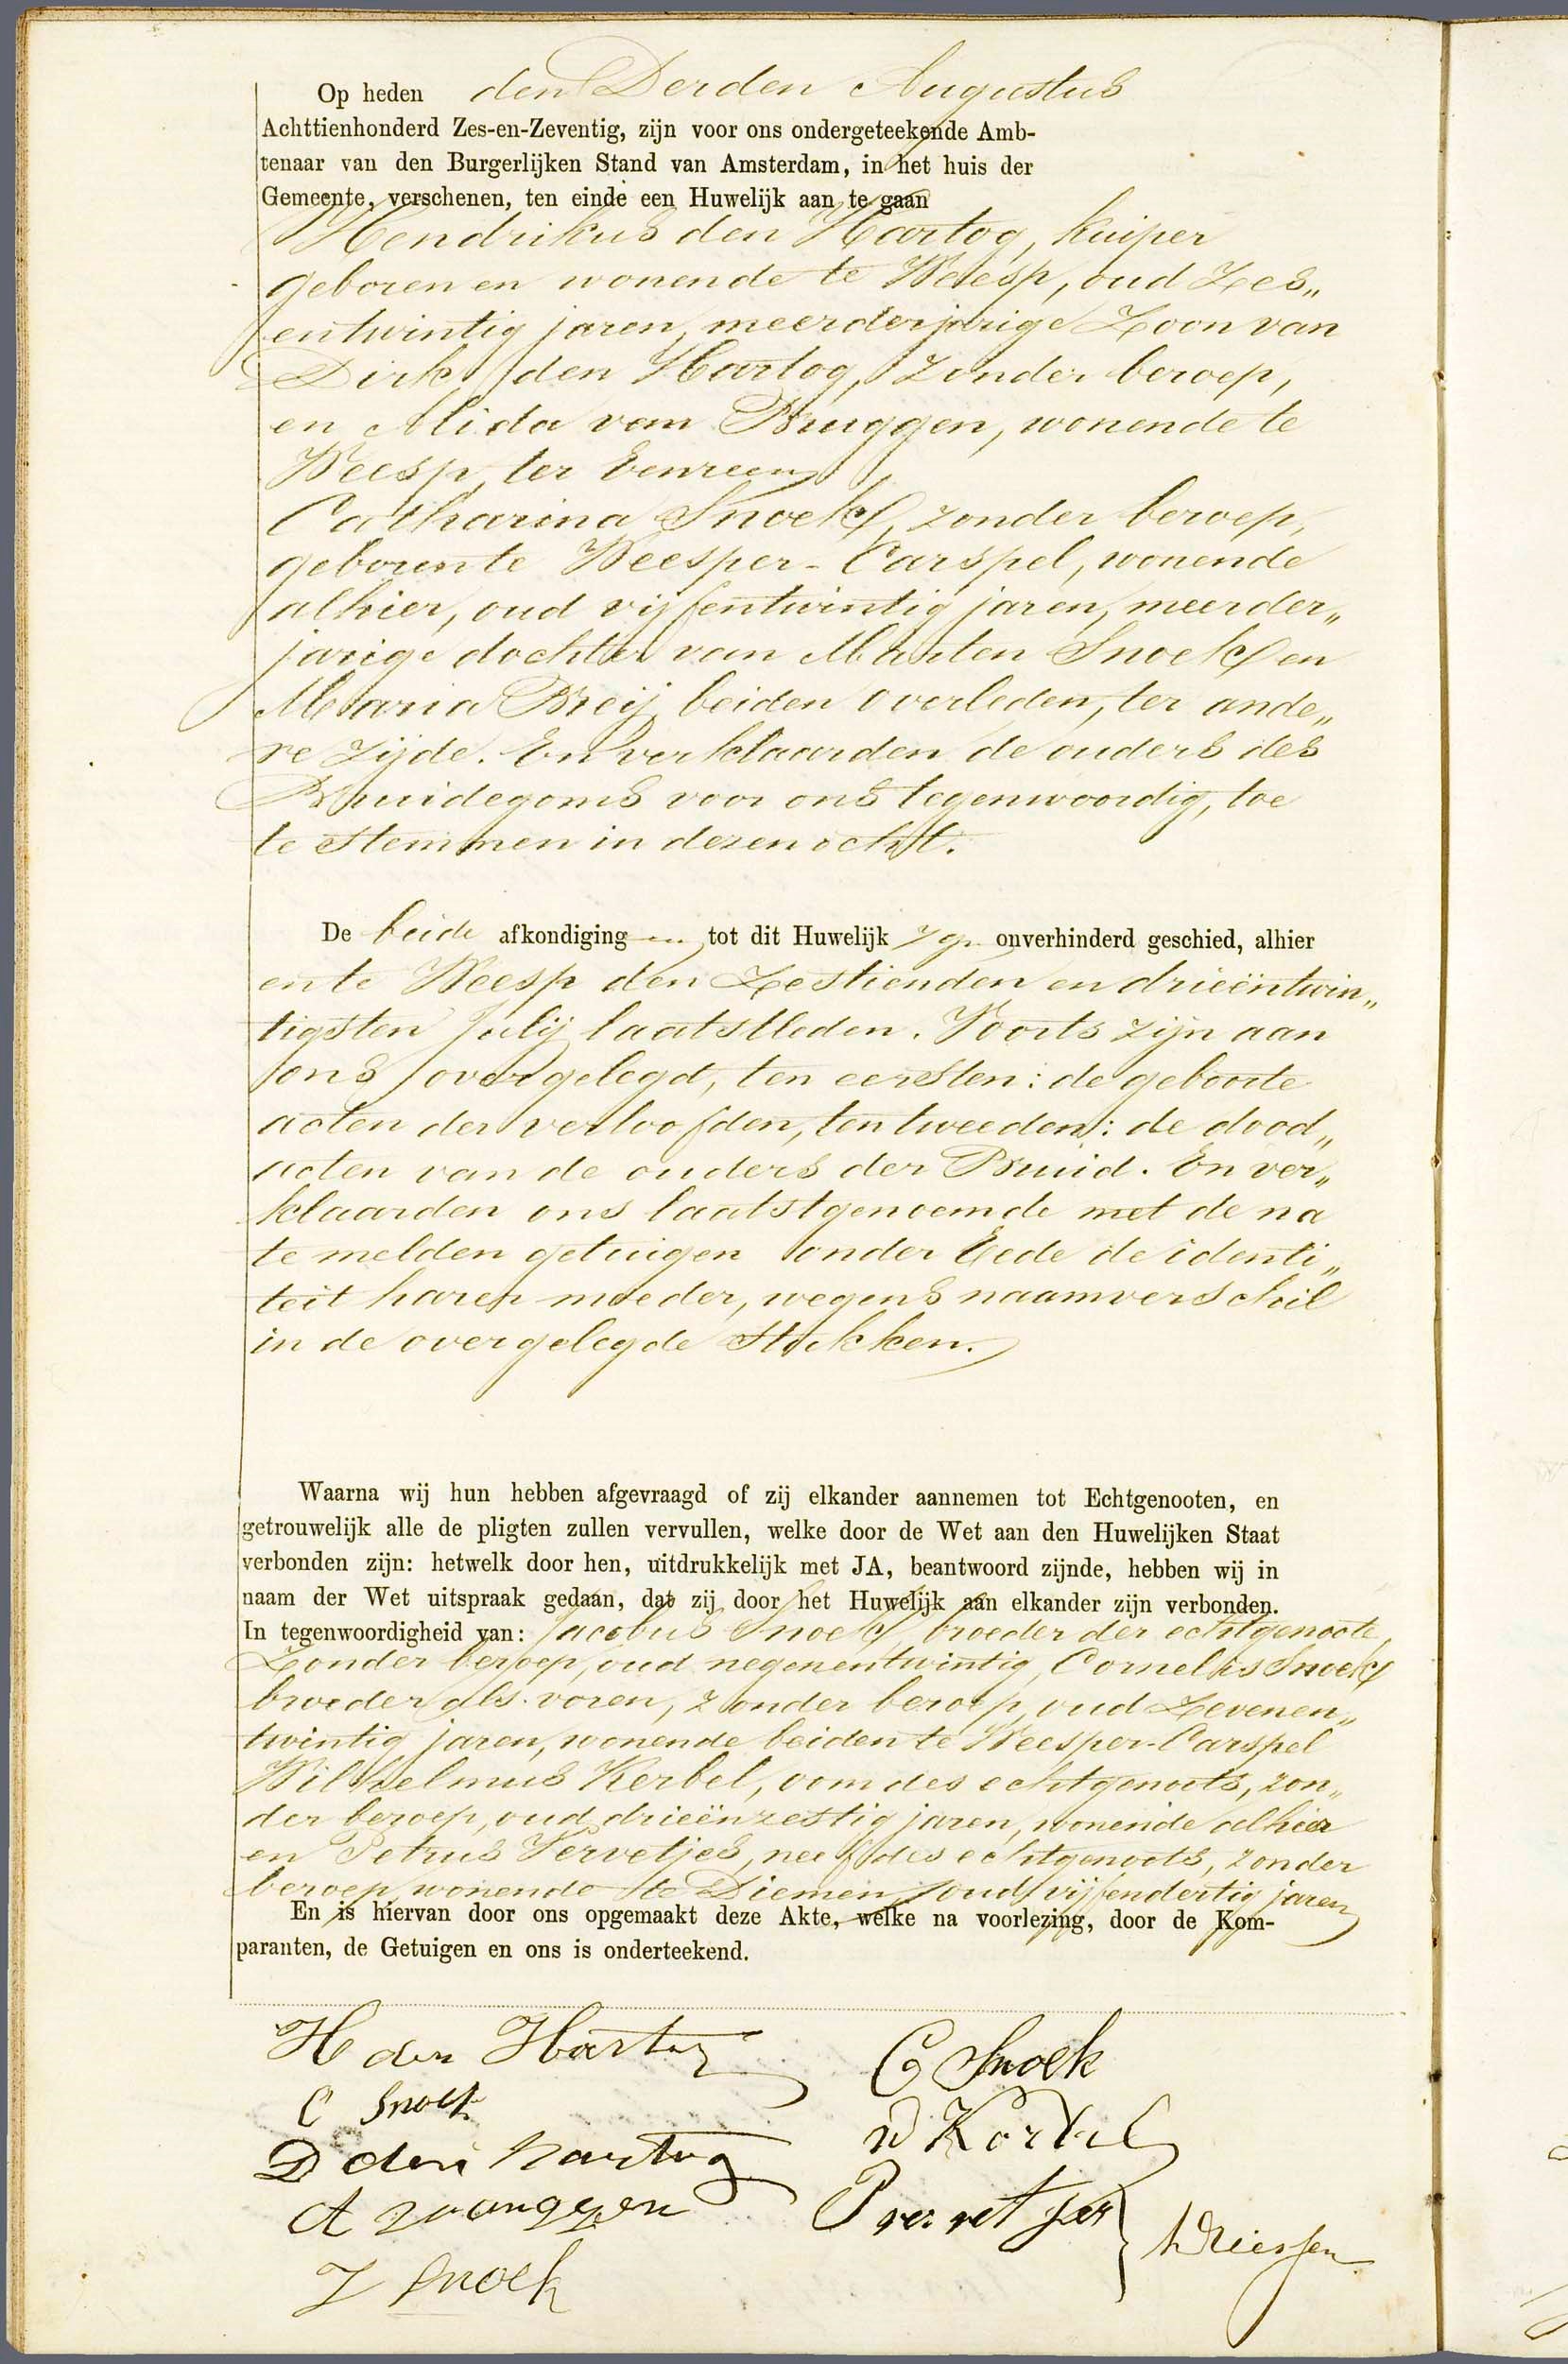 Op heden den Derden Augustus
Achttienhonderd Zes-en-Zeventig, zijn voor ons ondergeteekende Amb-
tenaar van den Burgerlijken Stand van Amsterdam, in het huis der
Gemeente, verschenen, ten einde een Huwelijk aan te gaan
Hendrikus den Hartog, kuiper
geboren en wonende te Weesp, oud Zes„
entwintig jaren, meerderjarige Zoon van
Dirk den Hartog, zonder beroep,
en Alida van Bruggen, wonende te
Weesp, ter Eenre en
Catharina Snoek, zonder beroep,
geboren te Weesper-Carspel, wonende
alhier, oud vijfentwintig jaren, meerder„
jarige dochter van Marten Snoek en
Maria Breij, beiden overleden, ter ande„
re zijde. En verklaarden de ouders des
Bruidegoms voor ons tegenwoordig, toe
te stemmen in dezen echt.
De beide afkondiging en tot dit Huwelijk zijn onverhinderd geschied, alhier
en te Weesp den Zestienden en drieëntwin„
tigsten Julij laatstleden. Voorts zijn aan
ons overgelegd, ten eersten: de geboorte
acten der verloofden, ten tweeden: de dood„
acten van de ouders der Bruid. En ver„
klaarden ons laatstgenoemde met de na
te melden getuigen onder Eede de identi„
teit harer moeder, wegens naamverschil
in de overgelegde stukken.
Waarna wij hun hebben afgevraagd of zij elkander aannemen tot Echtgenooten, en
getrouwelijk alle de pligten zullen vervullen, welke door de Wet aan den Huwelijken Staat
verbonden zijn: hetwelk door hen, uitdrukkelijk met JA, beantwoord zijnde, hebben wij in
naam der Wet uitspraak gedaan, dat zij door het Huwelijk aan elkander zijn verbonden.
In tegenwoordigheid van: Jacobus Snoek, broeder der echtgenoote,
Zonder beroep, oud negenentwintig, Cornelis Snoek
broeder als voren, zonder beroep, oud Zevenen„
twintig jaren, wonende beiden te Weesper-Carspel
Wilhelmus Kerbel, oom des echtgenoots, zon„
der beroep, oud drieënzestig jaren, wonende alhier
en Petrus Vervetjes, neef des echtgenoots, zonder
beroep, wonende te Diemen, oud vijfendertig jaren
En is hiervan door ons opgemaakt deze Akte, welke na voorlezing, door de Kom-
paranten, de Getuigen en ons is onderteekend.
H den Hartog
C Snoek
D den hartog
A
J Snoek
C Snoek
W Korbel
P ver vetjes